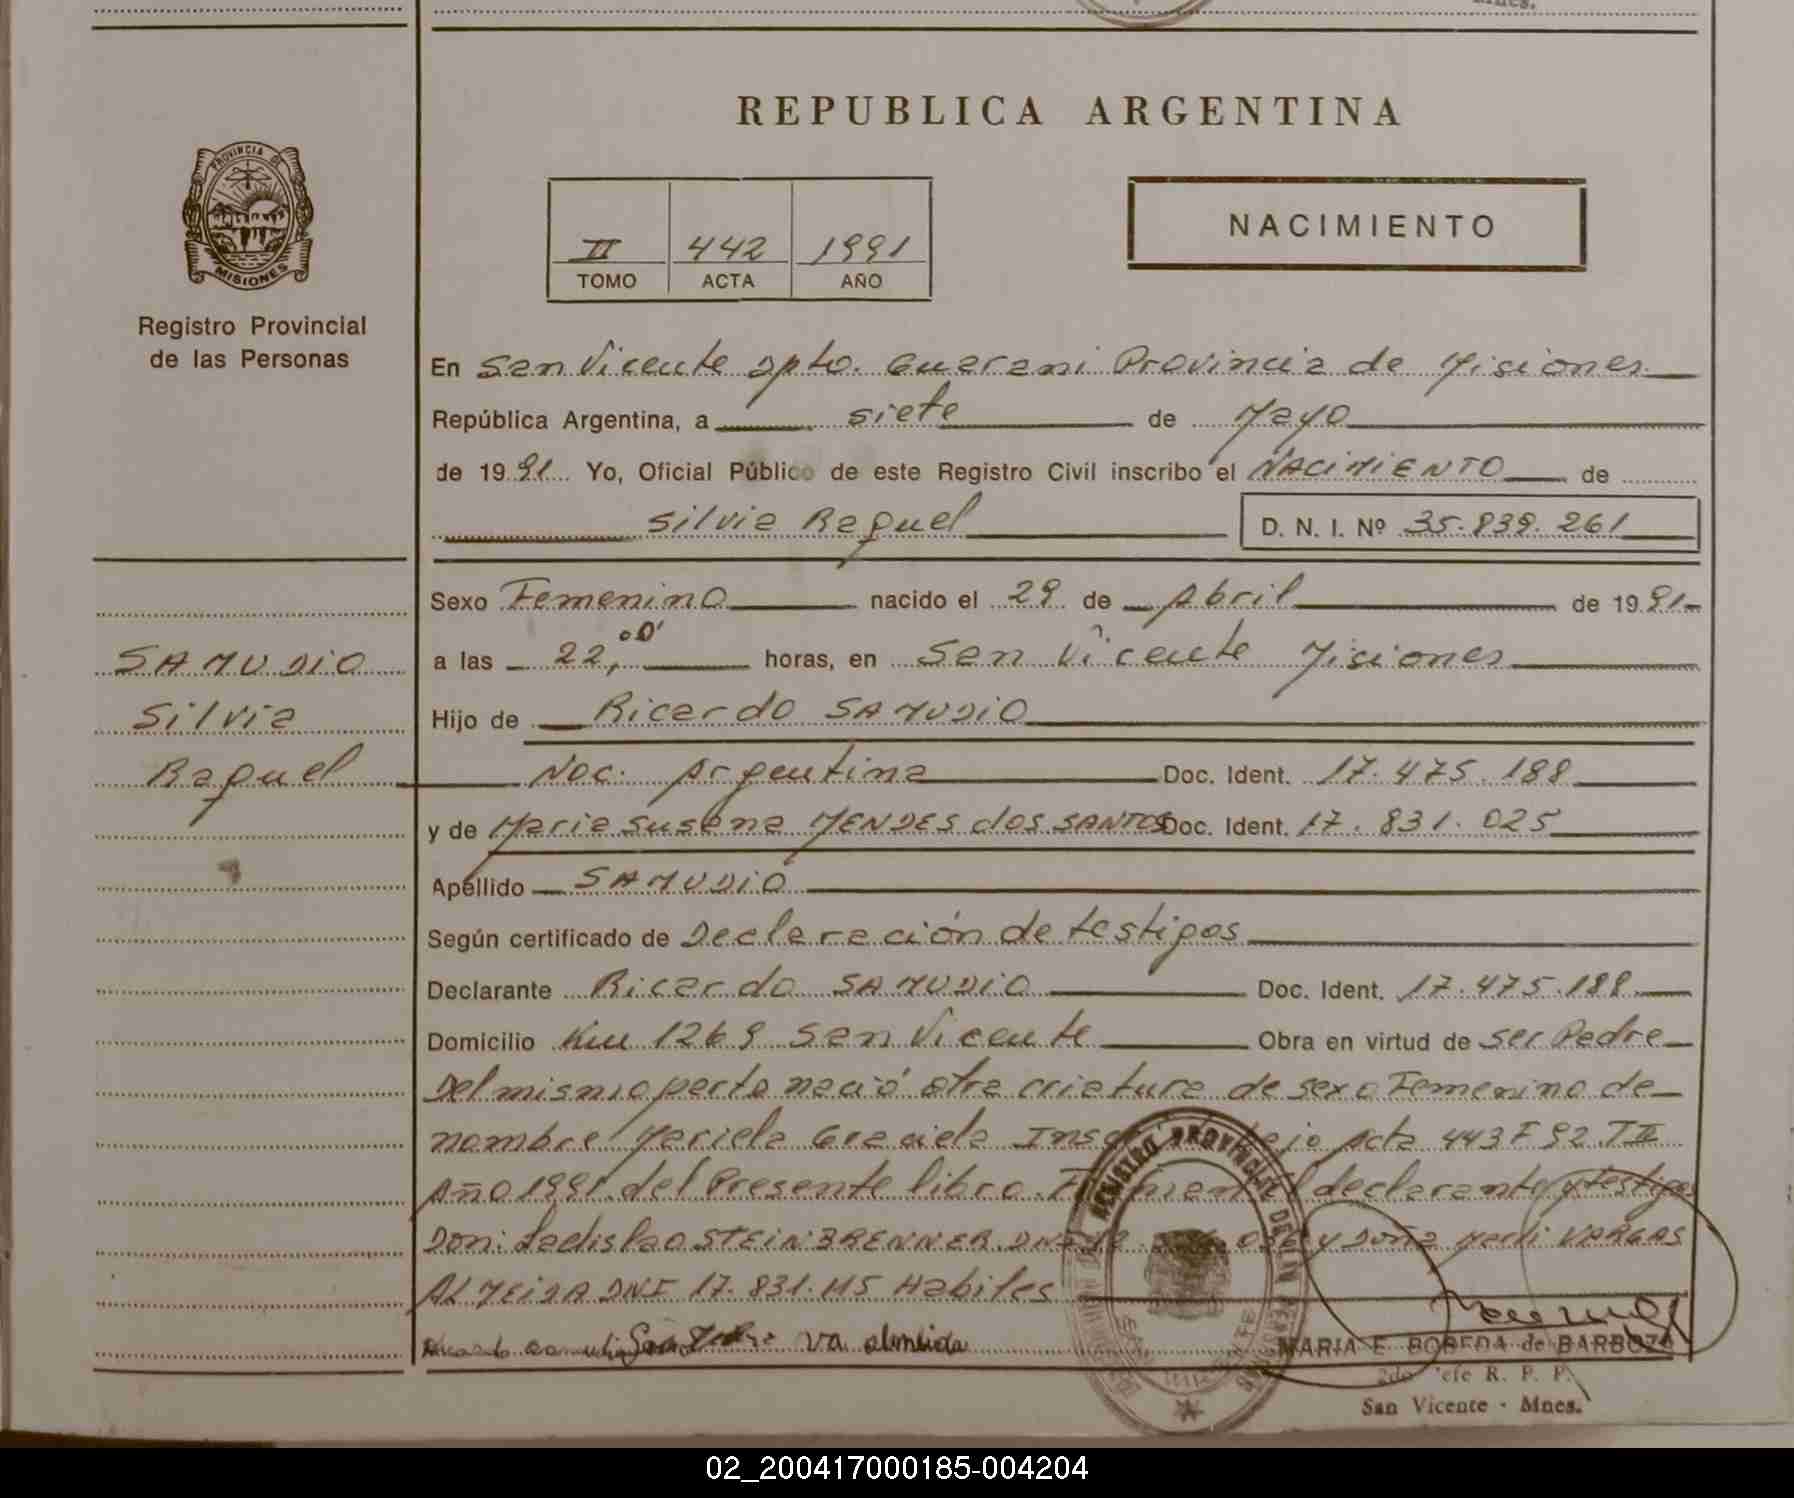 Mnes.
REPUBLICA ARGENTINA
PROVINCIA DE
MISIONES
Registro Provincial
de las Personas
II 442 1991
TOMO ACTA AÑO
NACIMIENTO
En San Vicente Dpto. Guarani Provincia de Misiones
República Argentina, a siete de Mayo
de 1991 Yo, Oficial Público de este Registro Civil inscribo el NACIMIENTO de
Silvia Raquel D. N. I. Nº 35.839.261
Sexo Femenino nacido el 29 de Abril de 1991
SAMUDIO
Silvia
Raquel
a las 22,00' horas, en San Vicente Misiones
Hijo de Ricardo SAMUDIO
Nac. Argentina Doc. Ident. 17.475.188
y de Maria Susana MENDES dos SANTOS Doc. Ident. 17.831.025
Apellido SAMUDIO
Según certificado de Declaración de testigos
Declarante Ricardo SAMUDIO Doc. Ident. 17.475.188
Domicilio Km 1269 San Vicente Obra en virtud de ser Padre
Del mismo parto nació otra criatura de sexo Femenino de
nombre Mariela Graciela bajo Acta 443 F 92 T II
Año 1991 del Presente libro. el declarante y testigos
Don: Ladislao STEINBRENNER DNI y Doña VARGAS
ALMEIDA DNI 17.831.115 Habiles
va almeida
REGISTRO PROVINCIAL DE LAS PERSONAS
SAN VICENTE
MARIA E. BOBEDA de BARBOZA
2do Jefe R. P. P.
San Vicente - Mnes.
02_200417000185-004204